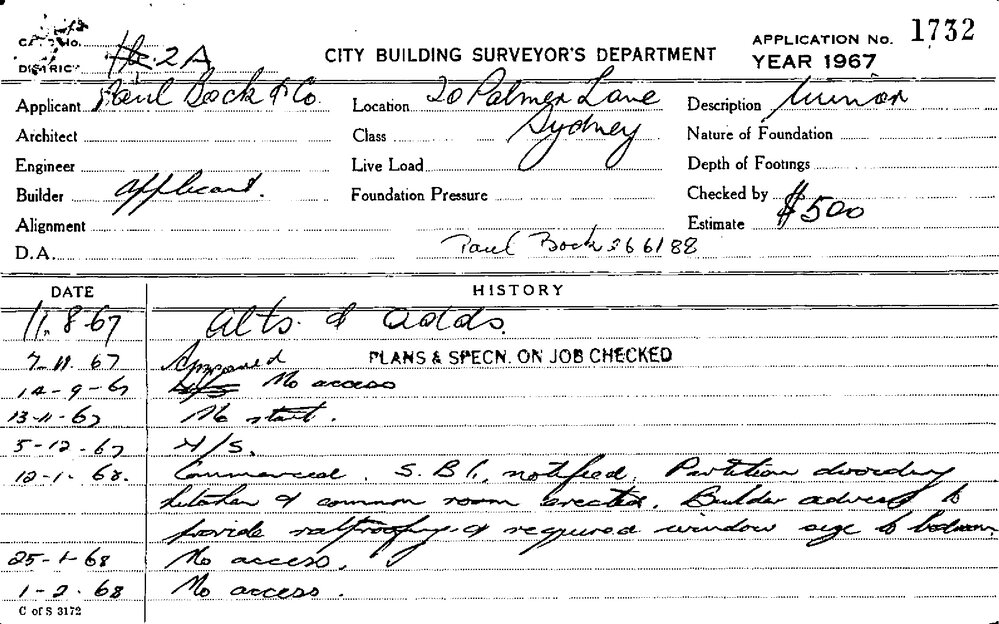 CARD No.
DISTRICT 2A
CITY BUILDING SURVEYOR'S DEPARTMENT
APPLICATION No. 1732
YEAR 1967
Applicant Paul Bock & Co. Location 20 Palmer Lane Description Minor
Architect Class Sydney Nature of Foundation
Engineer Live Load Depth of Footings
Builder applicant. Foundation Pressure Checked by
Alignment Estimate $500
D.A. Paul Bock 366188
DATE HISTORY
11.8.67 Alts. & adds.
7-11.67 Approved PLANS & SPECN. ON JOB CHECKED
14-9-67 No access
13-11-67 No start.
5-12-67 N/S.
12-1-68. Commenced. S.B.I. notified. Partition dividing
kitchen & common room erected. Builder advised to
provide ratproofing & required window size to bedroom.
25-1-68 No access.
1-2-68 No access.
C of S 3172